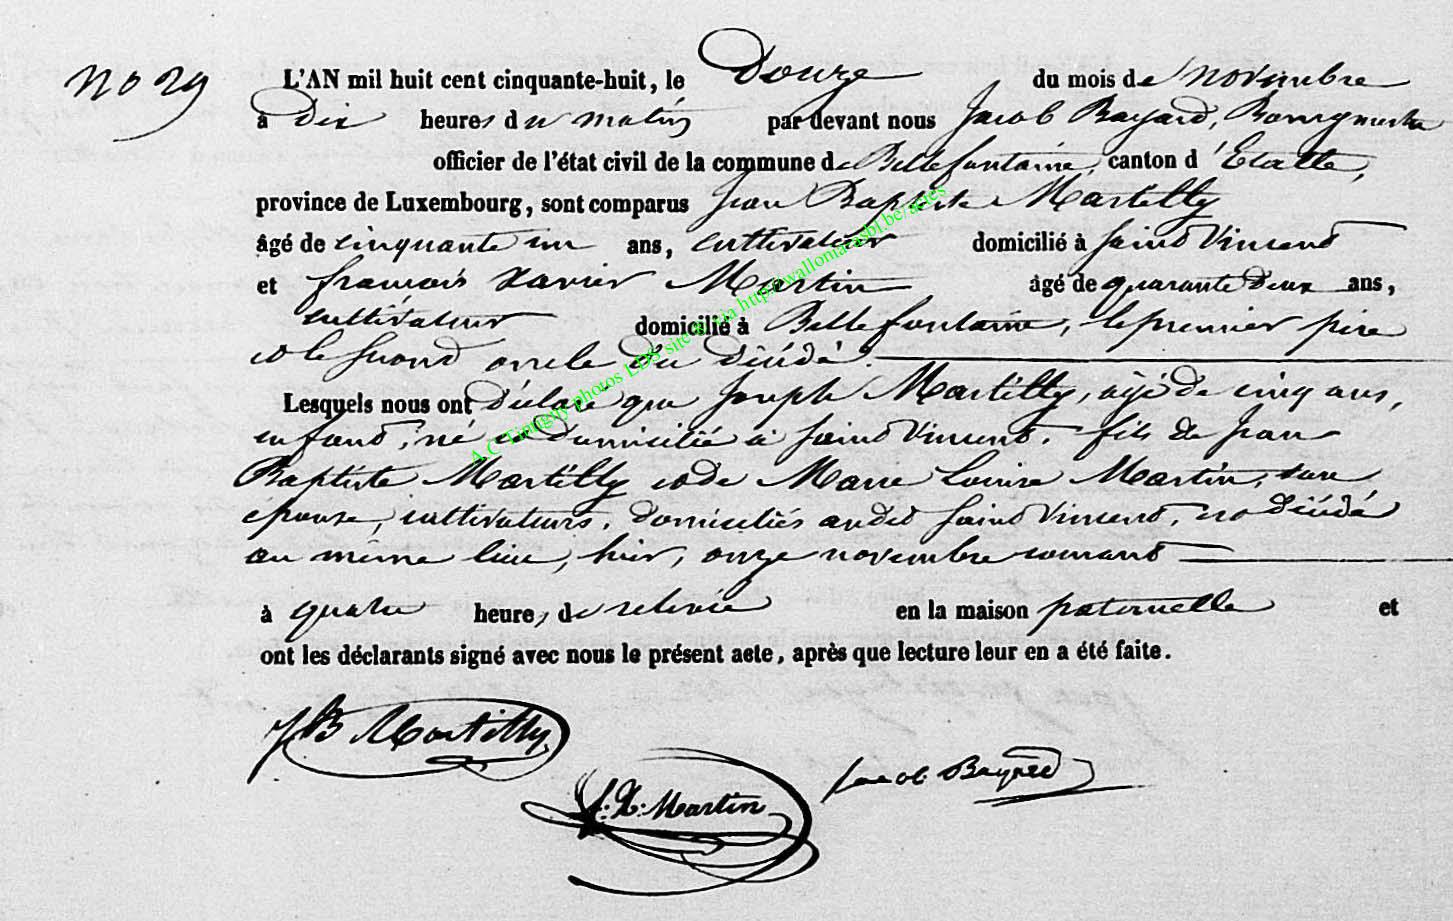 No 29
L'AN mil huit cent cinquante-huit, le Douze du mois de novembre
à dix heures du matin par devant nous Jacob Bayard, Bourgmestre
officier de l'état civil de la commune de Bellefontaine, canton d'Etalle,
province de Luxembourg, sont comparus Jean Baptiste Martilly
âgé de cinquante un ans, cultivateur domicilié à Saint Vincent
et françois Xavier Martin âgé de quarante deux ans,
cultivateur domicilié à Bellefontaine, le premier père
et le second oncle du décédé.
Lesquels nous ont déclaré que Joseph Martilly, âgé de cinq ans,
enfant, né et domicilié à Saint Vincent, fils de Jean
Baptiste Martilly et de Marie Louise Martin, son
épouse, cultivateurs, domiciliés audit Saint Vincent, est décédé
au même lieu, hier, onze novembre courant
à quatre heures de relevée en la maison paternelle et
ont les déclarants signé avec nous le présent acte, après que lecture leur en a été faite.
JB Martilly
f. X. Martin
Jacob Bayard
A.C Tintigny photos LDS site via http://wallonia-asbl.be/actes